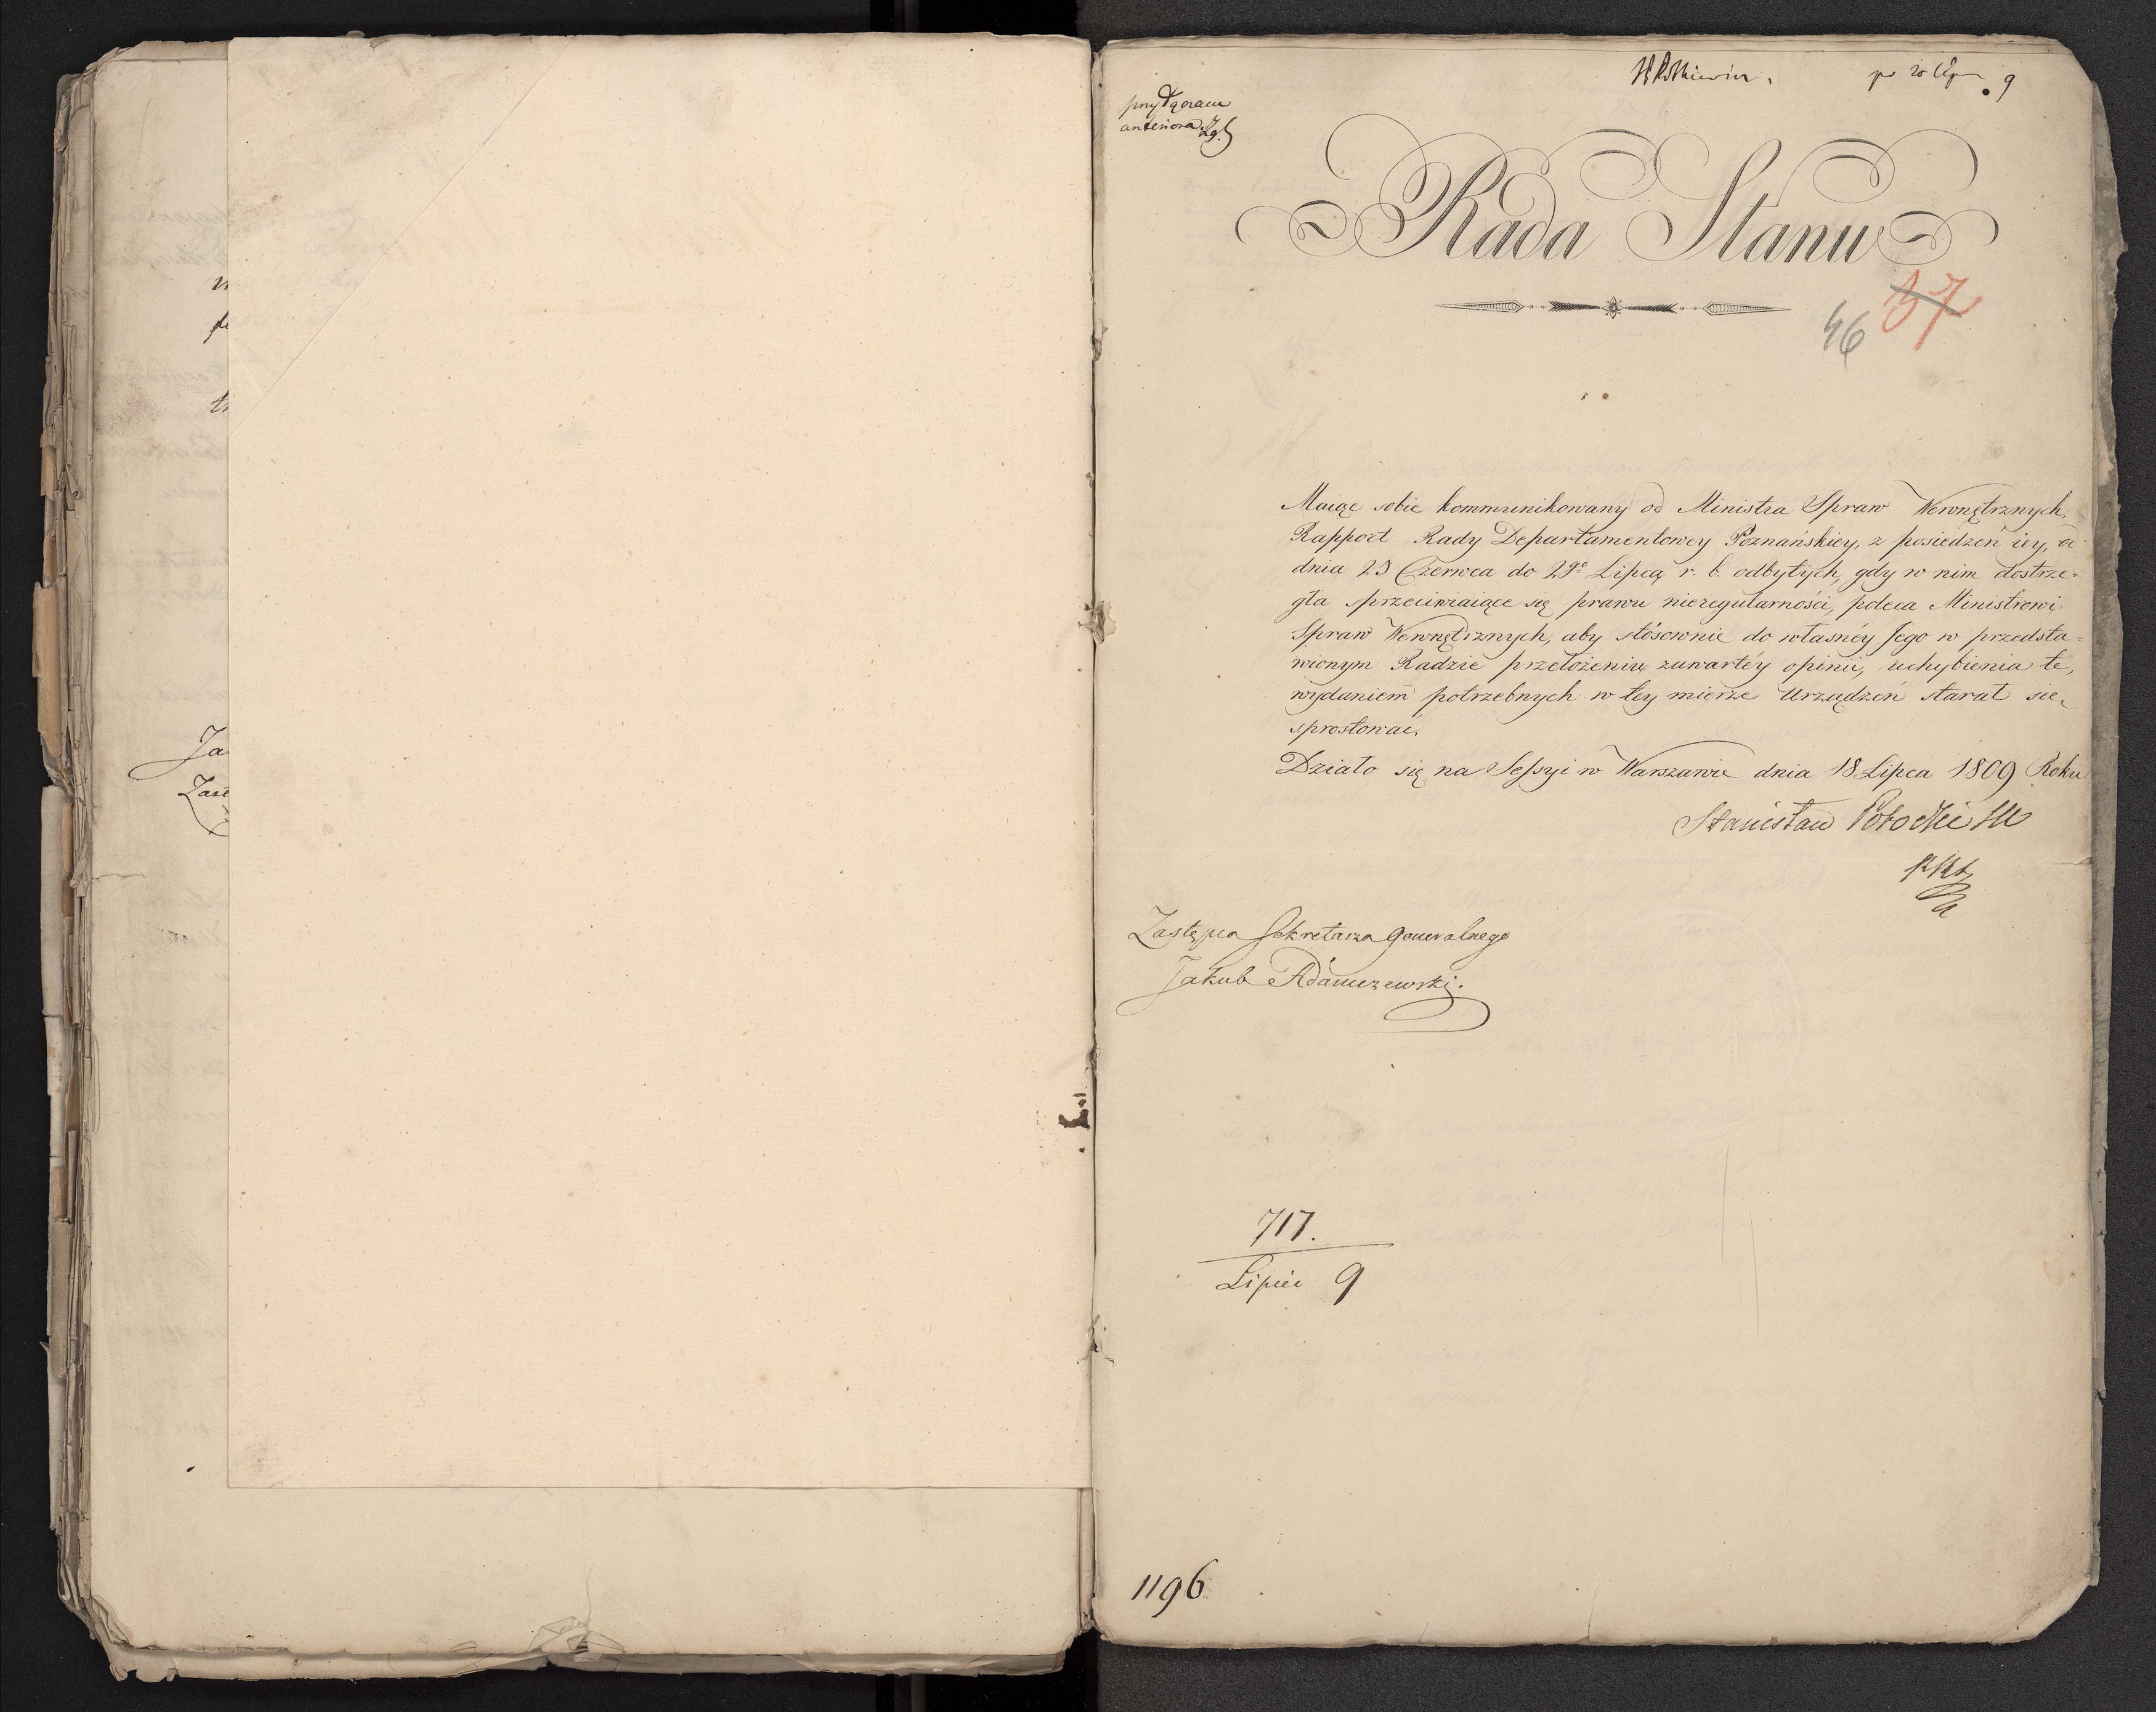 przyłączam
anteriora.
9
Rada Stanu
37
46
Maiąc sobie kommunikowany od Ministra Spraw Wewnętrznych,
Rapport Rady Departamentowey Poznańskiey, z posiedzeń iey, od
dnia 23 Czerwca do 29º Lipca r. b. odbytych, gdy w nim dostrze-
gła sprzeciwiaiące się prawu nieregularności, poleca Ministrowi
Spraw Wewnętrznych, aby stósownie do własnéy Jego w przedsta-
wionym Radzie przełożeniu zawartéy opinii, uchybienia te,
wydaniem potrzebnych w tey mierze Urządzeń starał się
sprostować.
Działo się na Sessyi w Warszawie dnia 18 Lipca 1809 Roku
Stanisław Potocki
Zastępca Sekretarza Generalnego
Jakub Adamczewski.
717.
Lipiec 9
1196